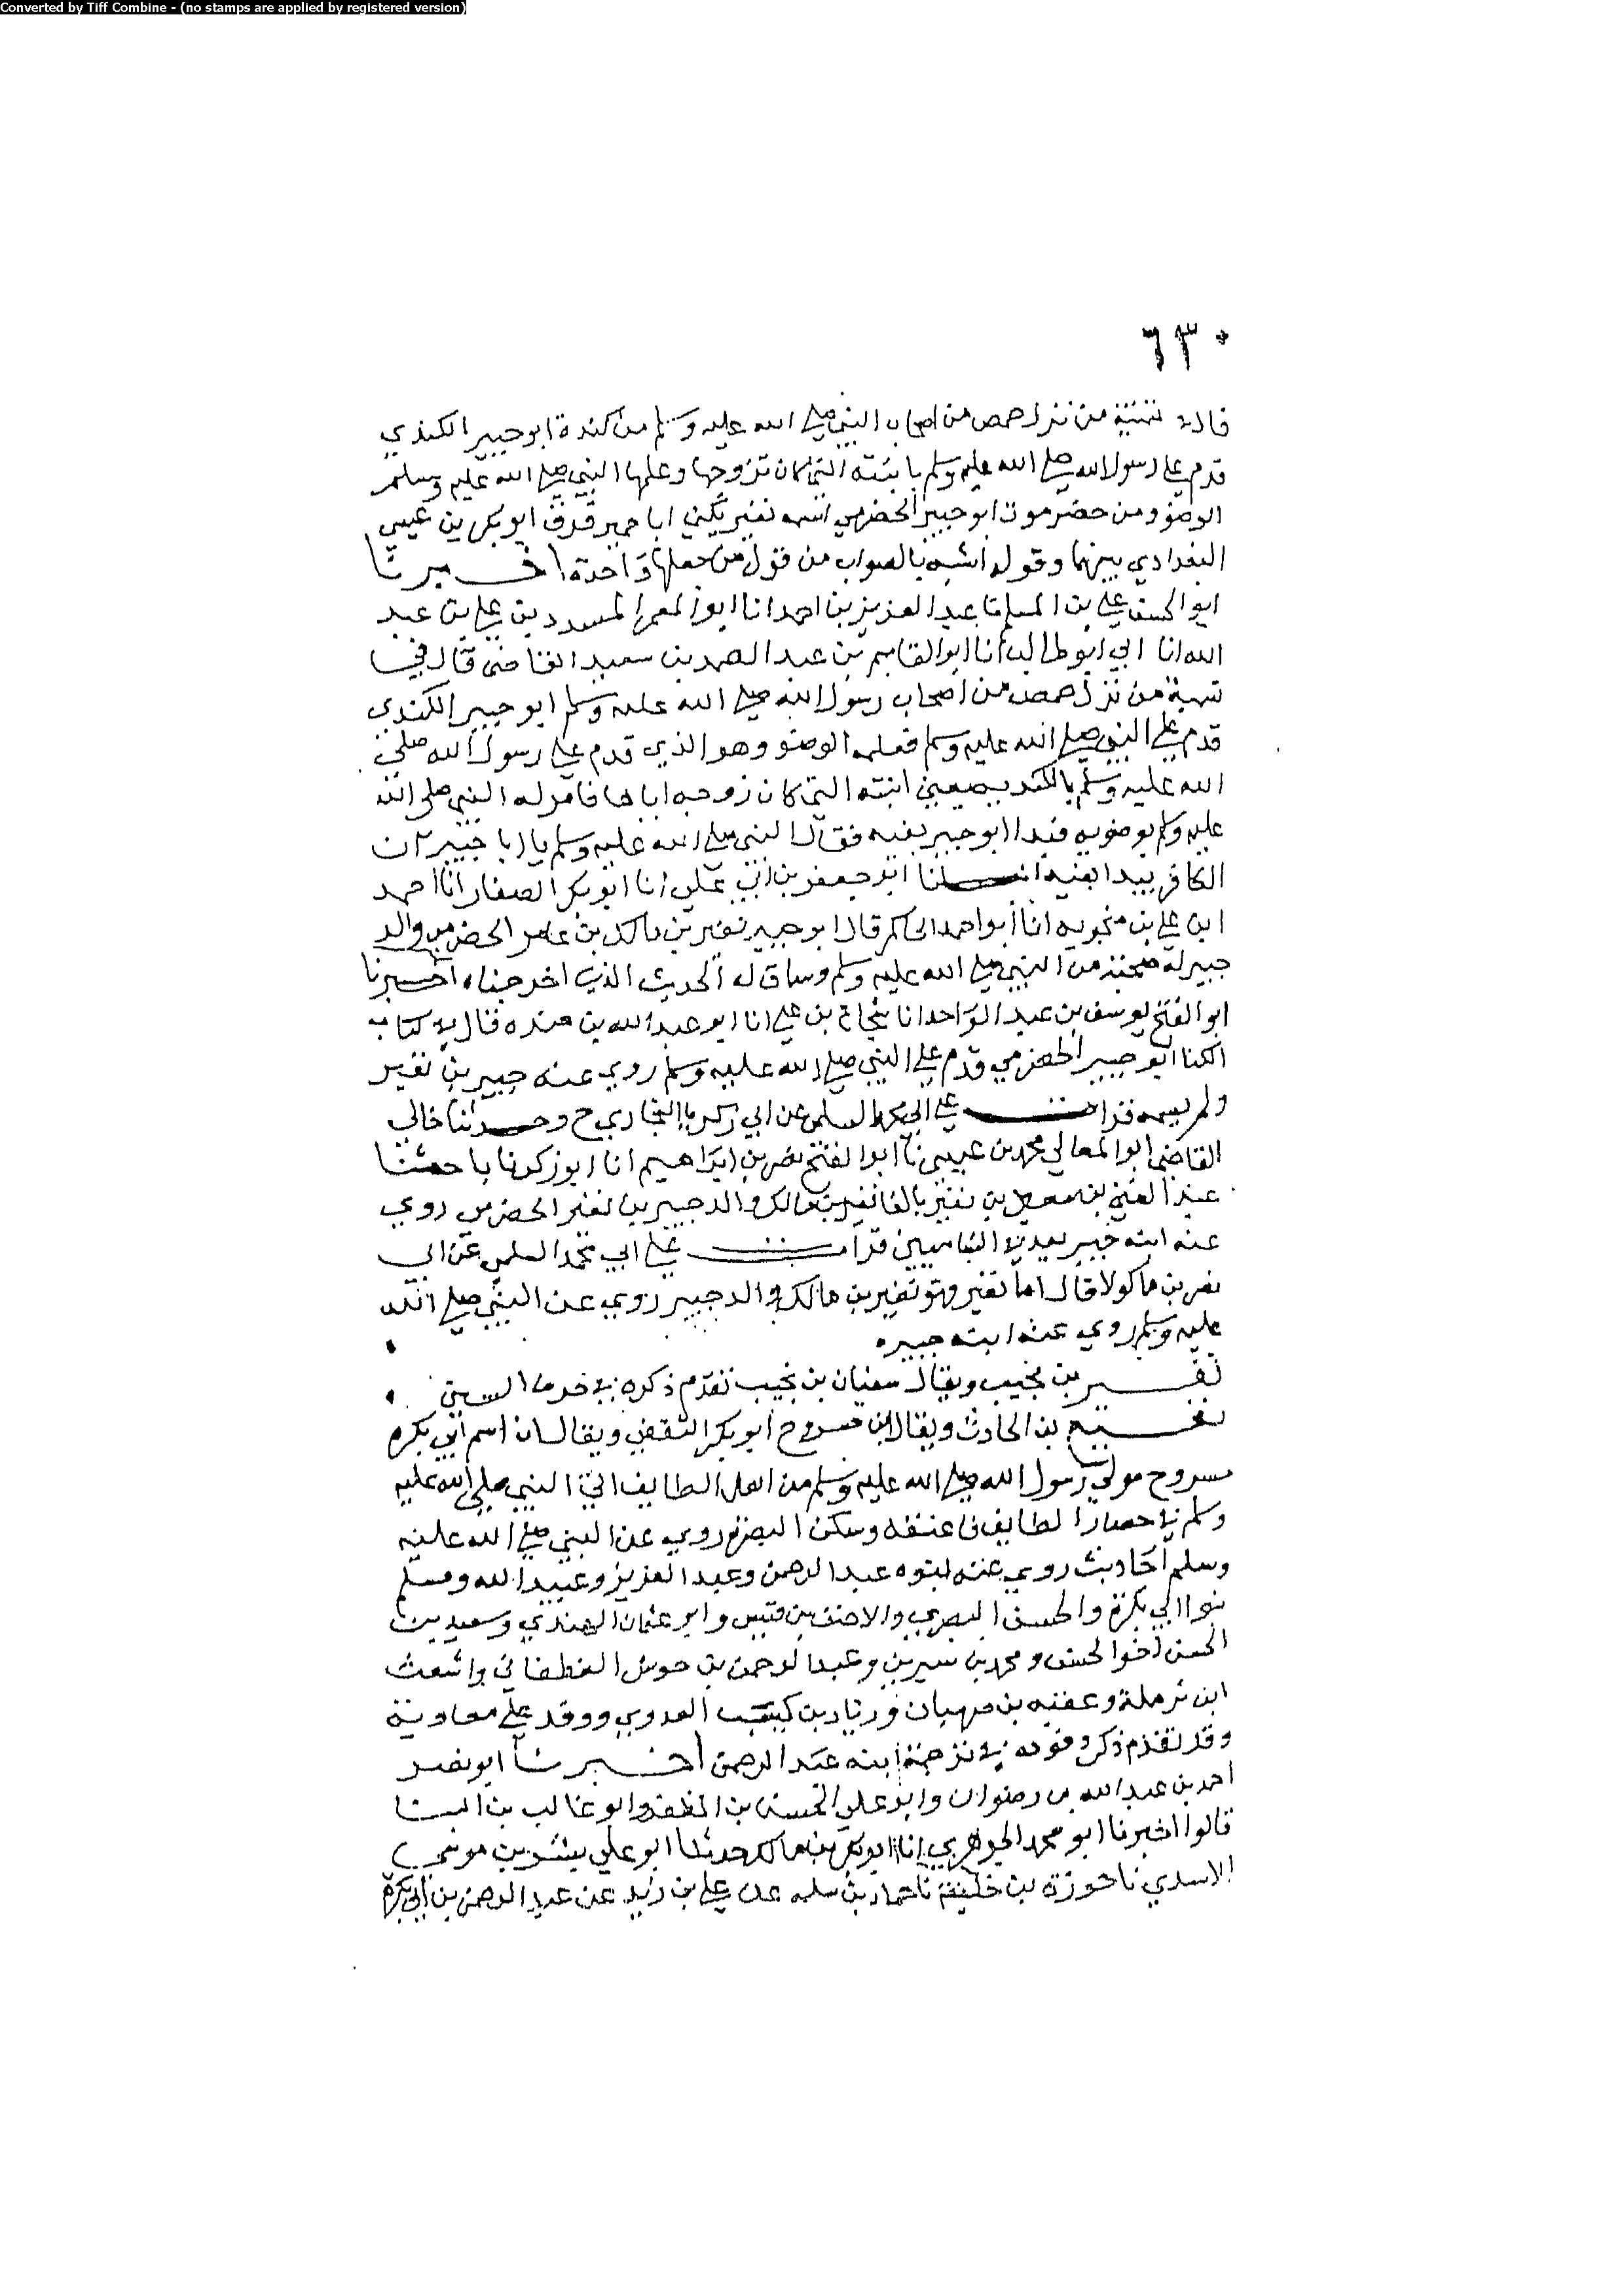 Converted by Tiff Combine - (no stamps are applied by registered version)
٦٣٠
قال تسمية من نزل حمص من اصحاب النبي صلى الله عليه وسلم من كندة ابو جبير الكندي
قدم على رسول الله صلى الله عليه وسلم بابنته التي كان تزوجها وعلمها النبي صلى الله عليه وسلم
الوضو ومن حضرموت ابو جبير الحضرمي اسمه نفير يكنى ابا جبير فرق ابو بكر بن عيسى
البغدادي بينهما وقوله اشبه بالصواب من قول من جعلهما واحدة اخبرنا
ابو الحسن علي بن المسلم نا عبد العزيز بن احمد انا ابو المعمر المسدد بن علي بن عبد
الله انا ابي ابو طالب انا ابو القاسم بن عبد الصمد بن سعيد القاضي قال في
تسمية من نزل حمص من اصحاب رسول الله صلى الله عليه وسلم ابو جبير الكندي
قدم على النبي صلى الله عليه وسلم فعلمه الوضو وهو الذي قدم على رسول الله صلى
الله عليه وسلم بالكندية يعني ابنته التي كان زوجه اياها فامر له النبي صلى الله
عليه وسلم بوضو به فبدا ابو جبير بفيه فقال النبي صلى الله عليه وسلم يا ابا جبير ان
الكافر يبدا بفيه انبانا ابو جعفر بن ابي علي انا ابو بكر الصفار انا احمد
ابن علي بن منجويه انا ابو احمد الحاكم قال ابو جبير نفير بن مالك بن عامر الحضرمي والد
جبير له صحبة من النبي صلى الله عليه وسلم وساق له الحديث الذي اخرجناه اخبرنا
ابو الفتح يوسف بن عبد الواحد انا شجاع بن علي انا ابو عبد الله بن منده قال في كتاب
الكنا ابو جبير الحضرمي قدم على النبي صلى الله عليه وسلم روى عنه جبير بن نفير
ولم يسمه قرات على ابي محمد السلمي عن ابي زكريا البخاري ح وحدثنا خالي
القاضي ابو المعالي محمد بن يحيى نا ابو الفتح نصر بن ابراهيم انا ابو زكريا حدثنا
عبد الغني بن سعيد بن نفير بالفا نفير بن مالك والد جبير بن نفير الحضرمي روى
عنه ابنه جبير يعد في الشاميين قرات على ابي محمد السلمي عن ابي
نصر بن ماكولا قال اما نفير فهو نفير بن مالك والد جبير روى عن النبي صلى الله
عليه وسلم روى عنه ابنه جبير
نفير بن مجيب ويقال سفيان بن مجيب تقدم ذكره في حرف السين
نفيع بن الحارث ويقال ابن مسروح ابو بكرة الثقفي ويقال ان اسم ابي بكرة
مسروح مولى رسول الله صلى الله عليه وسلم من اهل الطايف اتى النبي صلى الله عليه
وسلم في حصار الطايف فاعتقه وسكن البصرة روى عن النبي صلى الله عليه
وسلم احاديث روى عنه بنوه عبد الرحمن وعبد العزيز وعبيد الله ومسلم
بنوا ابي بكرة والحسن البصري والاحنف بن قيس وابو عثمان النهدي وسعيد بن
الحسن اخو الحسن ومحمد بن سيرين وعبد الرحمن بن جوشن الغطفاني واشعث
ابن ثرملة وعقبه بن صهبان وزياد بن كسيب العدوي ووفد على معاوية
وقد تقدم ذكر وفوده في ترجمة ابنه عبد الرحمن اخبرنا ابو نصر
احمد بن عبد الله بن رضوان وابو علي الحسن بن المظفر وابو غالب بن البنا
قالوا اخبرنا ابو محمد الجوهري انا ابو بكر بن مالك حدثنا ابو علي بشر بن موسى
الاسدي نا هوذة بن خليفة نا حماد بن سلمه عن علي بن زيد عن عبد الرحمن بن ابي بكرة